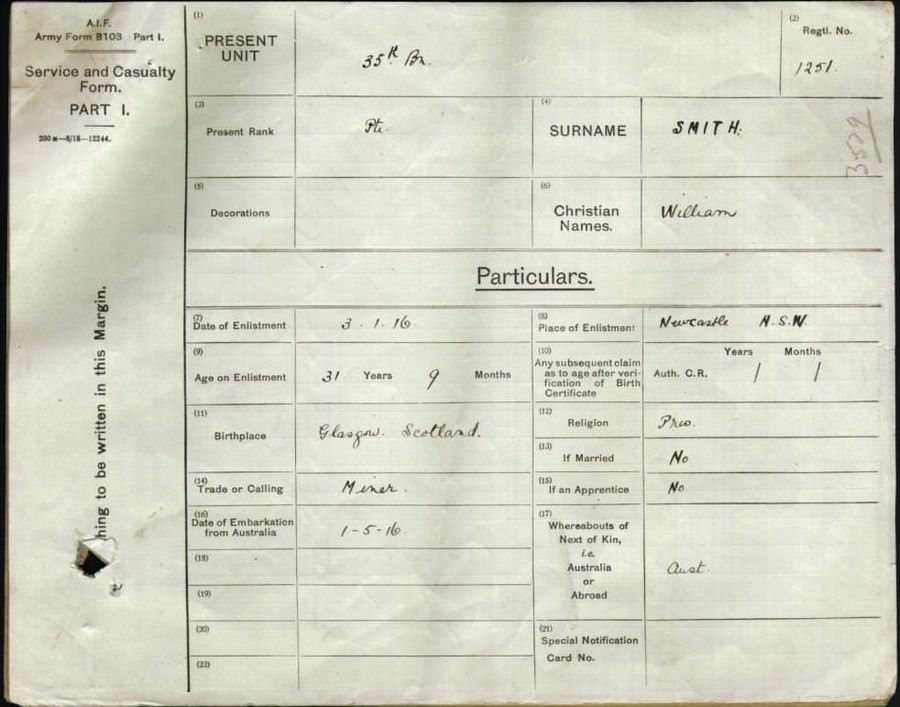 A.I.F.
Army Form B103 Part I.
Service and Casualty
Form.
PART I.
200 m—8/18—12244.
hing to be written in this Margin.
(1)
PRESENT
UNIT
35th Bn.
(2)
Regtl. No.
1251.
(3)
Present Rank
Pte.
(4)
SURNAME
SMITH.
(5)
Decorations
(6)
Christian
Names.
William
Particulars.
(7)
Date of Enlistment
3-1-16
(8)
Place of Enlistment
Newcastle N.S.W.
(9)
Age on Enlistment
31 Years 9 Months
(10)
Any subsequent claim
as to age after veri-
fication of Birth
Certificate
Years Months
Auth. C.R. / /
(11)
Birthplace
Glasgow. Scotland.
(12)
Religion
(13)
If Married
No
(14)
Trade or Calling
Miner.
(15)
If an Apprentice
No
(16)
Date of Embarkation
from Australia
1-5-16
(17)
Whereabouts of
Next of Kin,
i.e.
Australia
or
Abroad
Aust.
(18)
(19)
(20)
(21)
Special Notification
Card No.
(22)